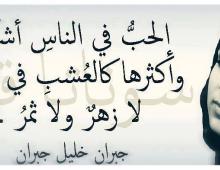 الحبُّ في الناسِ
وأكثرها كالعُشبِ في
لا زهرٌ ولا ثمرُ
جبران خليل جبران